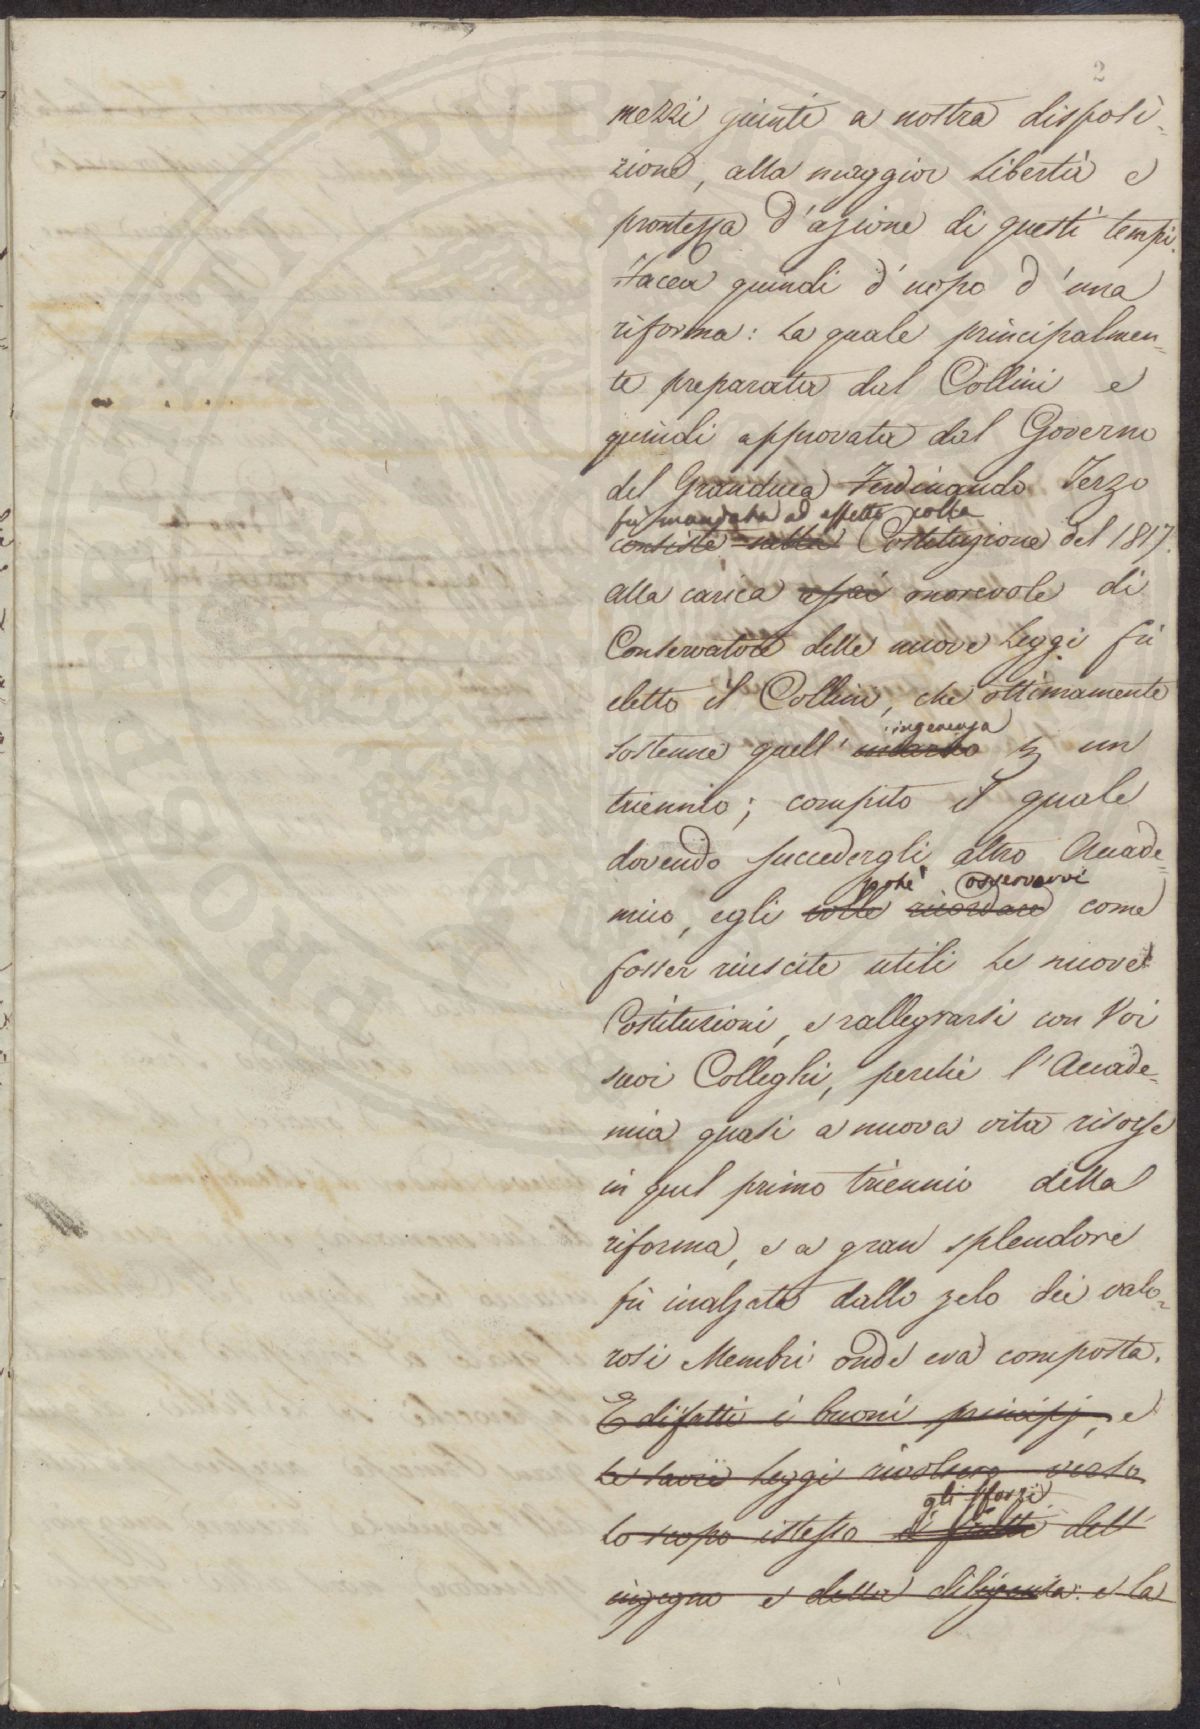 2
mezzi giunti a nostra disposi-
zione, alla maggior libertà e
prontezza d'azione di questi tempi.
Facea quindi d'uopo d'una
riforma: la quale principalmen-
te preparata dal Collini e
quindi approvata dal Governo
del Granduca Ferdinando Terzo
fù mandata ad effetto colla
consistè nella Costituzione del 1817.
alla carica assai onorevole di
Conservatore delle nuove Leggi fù
eletto il Collini, che ottimamente
ingerenza
sostenne quell' incarico un
triennio; compito il quale
dovendo succedergli altro Accade-
potè osservarvi
mico, egli volle ricordare come
fosser riuscite utili le nuove
Costituzioni, e rallegrarsi con Voi
suoi Colleghi, perchè l'Accade-
mia quasi a nuova vita risorse
in quel primo triennio della
riforma, e a gran splendore
fù inalzata dallo zelo dei valo-
rosi Membri onde era composta.
E difatti i buoni principj, e
le savie Leggi rivolsero verso
gli sforzi
lo scopo istesso i frutti dell'
ingegno e della diligenza: e la